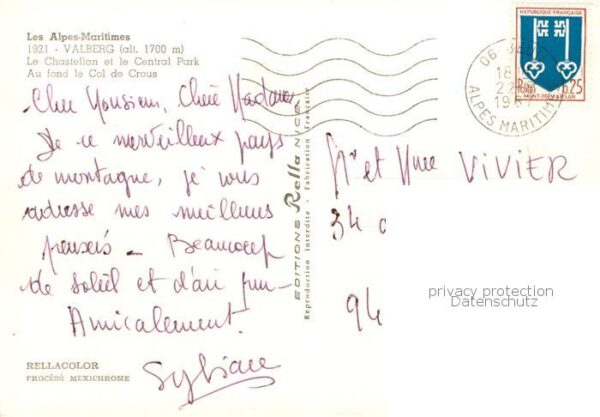 Les Alpes-Maritimes
1921 - VALBERG (alt. 1700 m)
Le Chastellan et le Central Park
Au fond le Col de Crous
Cher Monsieur, Chère Madame
De ce merveilleux pays
de montagne, je vous
adresse mes meilleures
pensées - Beaucoup
de soleil et d'air pur -
Amicalement.
Sylviane
RELLACOLOR
PROCÉDÉ MEXICHROME
EDITIONS Rella NICE
Reproduction interdite - Fabrication Française
REPUBLIQUE FRANÇAISE
POSTES
0,25
MONT-DE-MARSAN
06
18
ALPES MARITIM
Mr et Mme VIVIER
34
94
privacy protection
Datenschutz